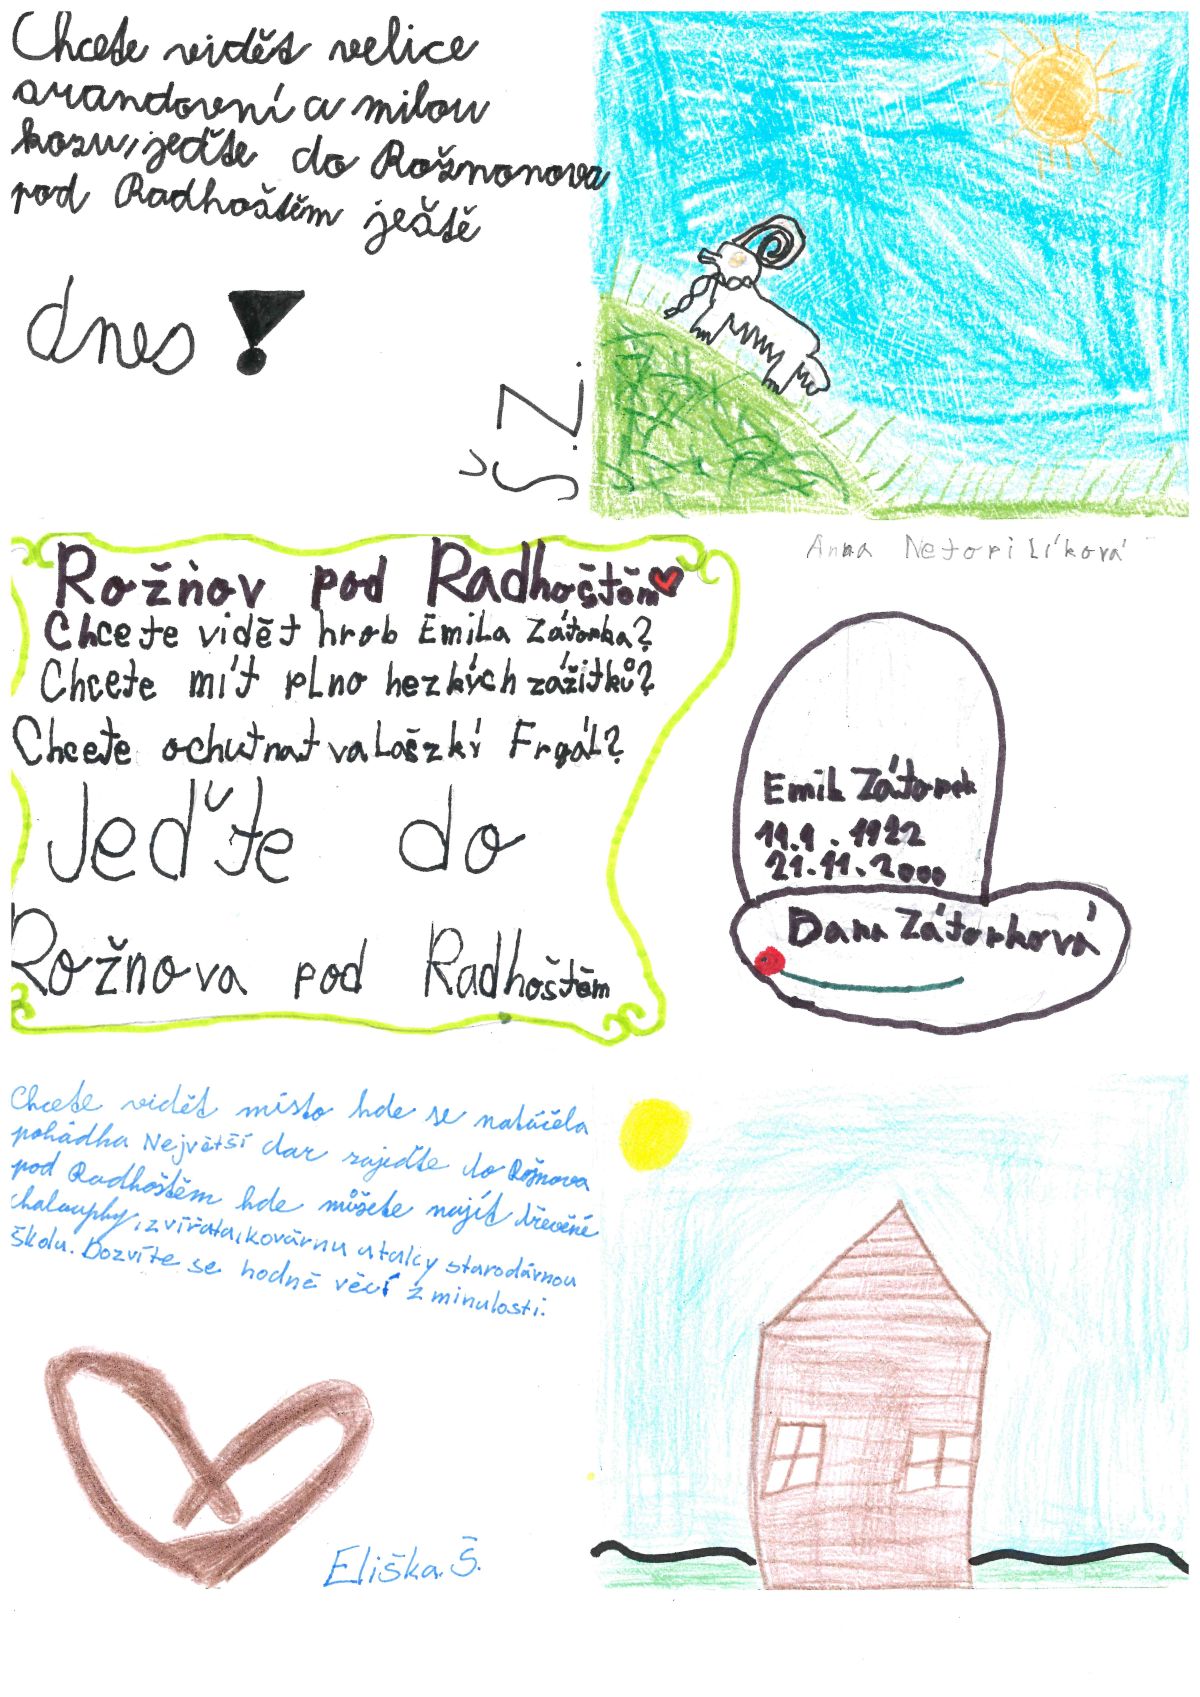 Chcete vidět velice
srandovní a milou
kozu, jeďte do Rožnonova
pod Radhoštěm ještě
dnes!
Š.Z.
Anna Netopilíková
Rožňov pod Radhoštěm
Chcete vidět hrob Emila Zátopka?
Chcete mít plno hezkých zážitků?
Chcete ochutnat valašzký Frgál?
Jeďte do
Rožnova pod Radhoštěm
Emil Zátopek
19.9.1922
21.11.2000
Dana Zátopková
Chcete vidět místo kde se natáčela
pohádka Největší dar zajeďte do Rožnova
pod Radhoštěm kde můžete najít dřevěné
chaloupky, zvířata, kovárnu a taky starodávnou
školu. Dozvíte se hodně věcí z minulosti.
Eliška.Š.